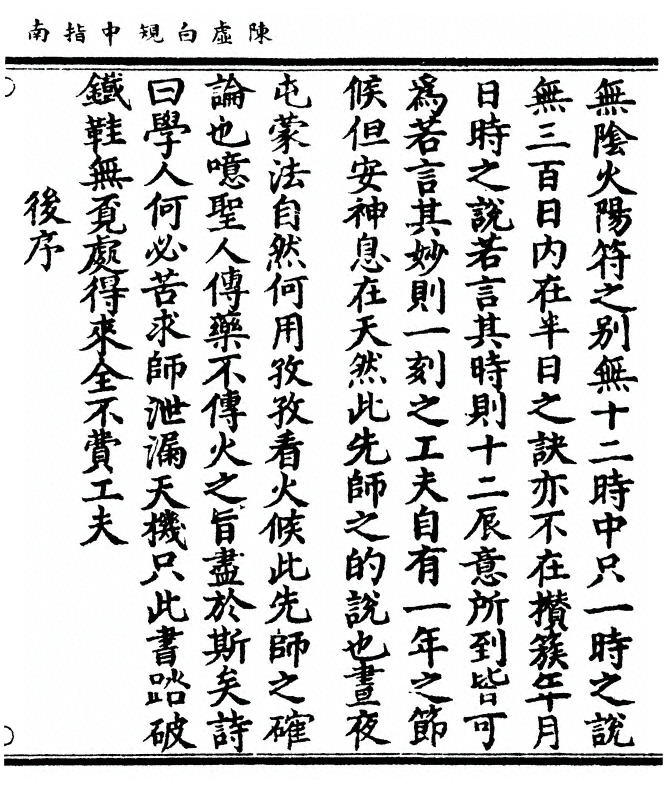 陳虛白規中指南
無陰火陽符之别無十二時中只一時之說
無三百日内在半日之訣亦不在攅簇年月
日時之說若言其時則十二辰意所到皆可
為若言其妙則一刻之工夫自有一年之節
候但安神息在天然此先師之的說也晝夜
屯蒙法自然何用孜孜看火候此先師之確
論也噫聖人傳藥不傳火之旨盡於斯矣詩
曰學人何必苦求師泄漏天機只此書踏破
鐵鞋無覔處得來全不費工夫
後序